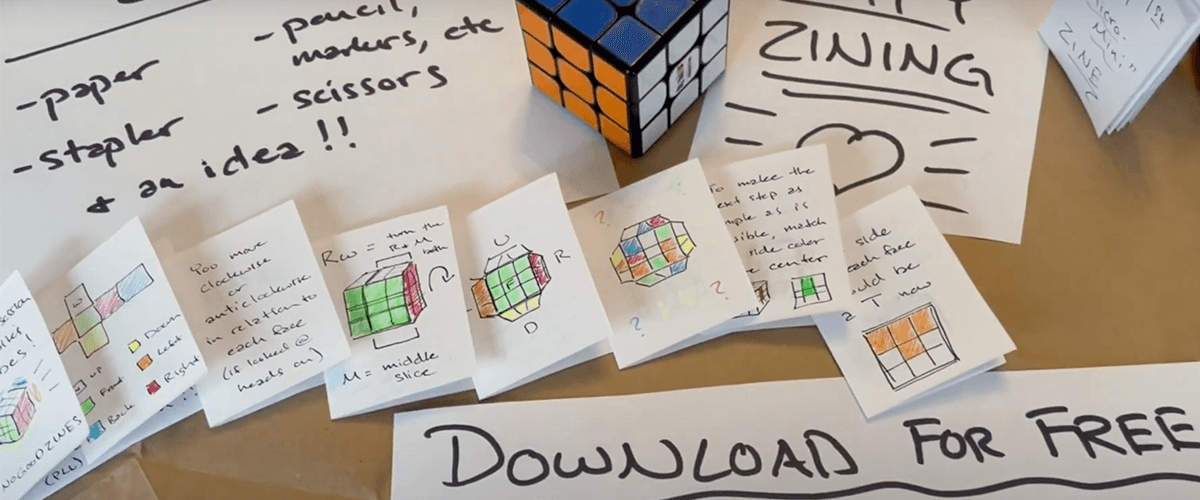 - paper
- stapler
- pencil,
markers, etc
- scissors
+ an idea!!
ZINING
1st
Micro-
Mini"
ZINES
NOGOODZINES
(PLL)
up
Front
Back
Down
Left
Right
You move
clockwise
or
anticlockwise
in relation to
each face
(if looked @
heads on)
Rw = turn the
R+M
both
M = middle
slice
U
R
F
D
?
?
?
?
To make the
next step as
as is
match
side color
center
side
each face
be
T now
DOWNLOAD FOR FREE